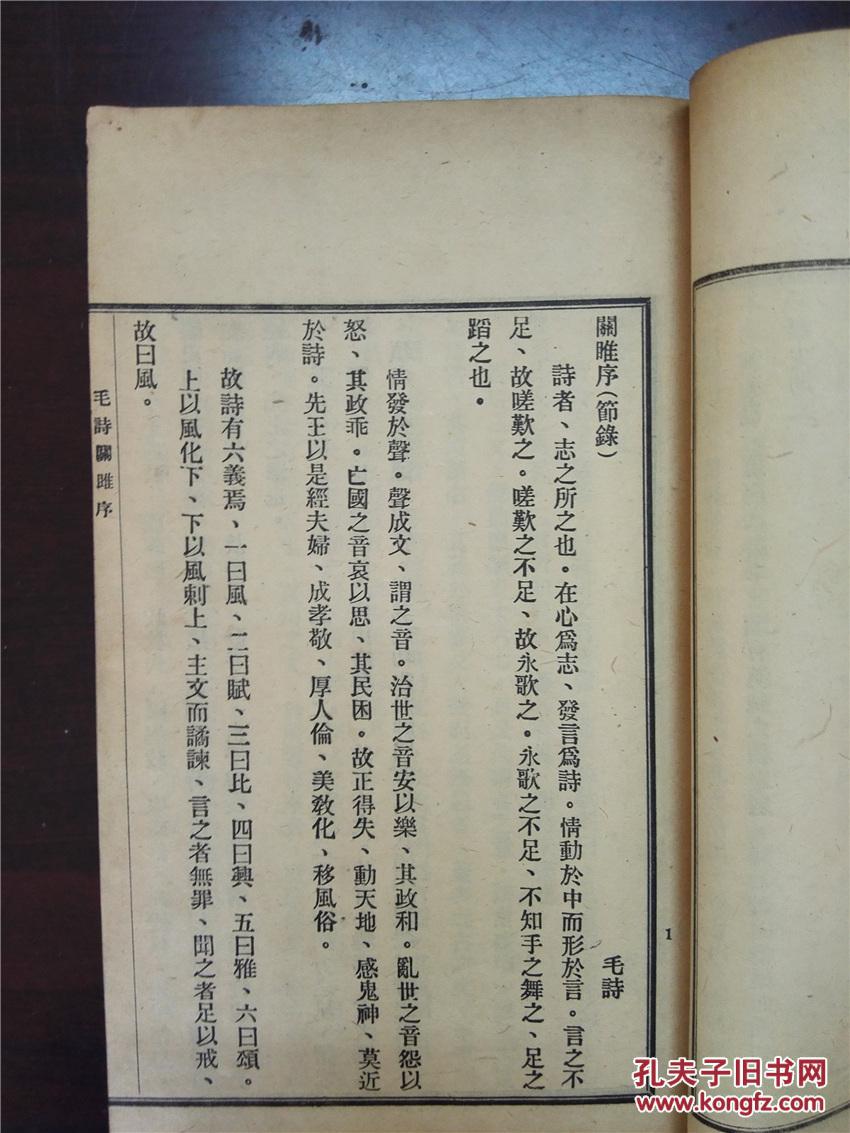 關雎序（節錄）
毛詩
詩者、志之所之也。在心爲志、發言爲詩。情動於中而形於言。言之不
足、故嗟歎之。嗟歎之不足、故永歌之。永歌之不足、不知手之舞之、足之
蹈之也。
情發於聲。聲成文、謂之音。治世之音安以樂、其政和。亂世之音怨以
怒、其政乖。亡國之音哀以思、其民困。故正得失、動天地、感鬼神、莫近
於詩。先王以是經夫婦、成孝敬、厚人倫、美敎化、移風俗。
故詩有六義焉、一曰風、二曰賦、三曰比、四曰興、五曰雅、六曰頌。
上以風化下、下以風刺上、主文而譎諫、言之者無罪、聞之者足以戒、
故曰風。
毛詩關雎序
1
孔夫子旧书网
www.kongfz.com